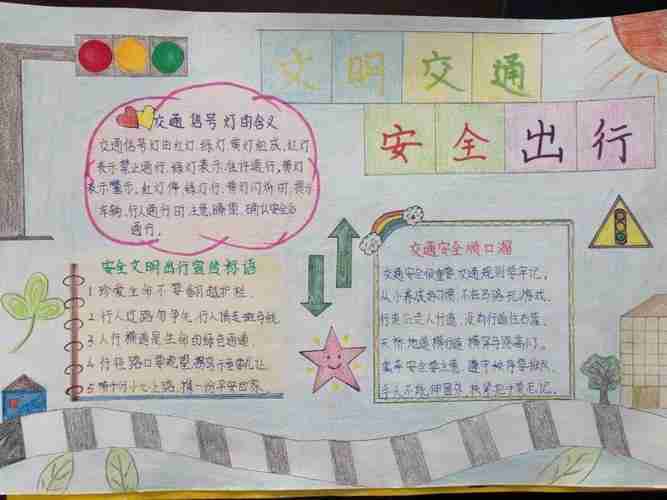 文明交通
安全出行
交通信号灯的含义
交通信号灯由红灯、绿灯、黄灯组成,红灯
表示禁止通行,绿灯表示准许通行,黄灯
表示警示,红灯停,绿灯行,黄灯闪烁时,提示
车辆、行人通行时注意瞭望,确认安全后
通行。
安全文明出行宣传标语
1 珍爱生命不要翻越护栏.
2. 行人过路勿争先,行人慎走斑马线
3. 人行横道是生命的绿色通道
4. 行经路口要观望,
5. 小心上路,换一份平安回家
交通安全顺口溜
交通安全很重要,交通规则要牢记。
从小养成好习惯,不在马路玩游戏。
行走应走人行道,没有行道往右靠。
天桥地道横行道,横穿马路离不了。
乘车安全要注意,遵守秩序要排队。
手头不能伸窗外,扶紧把手要牢记。